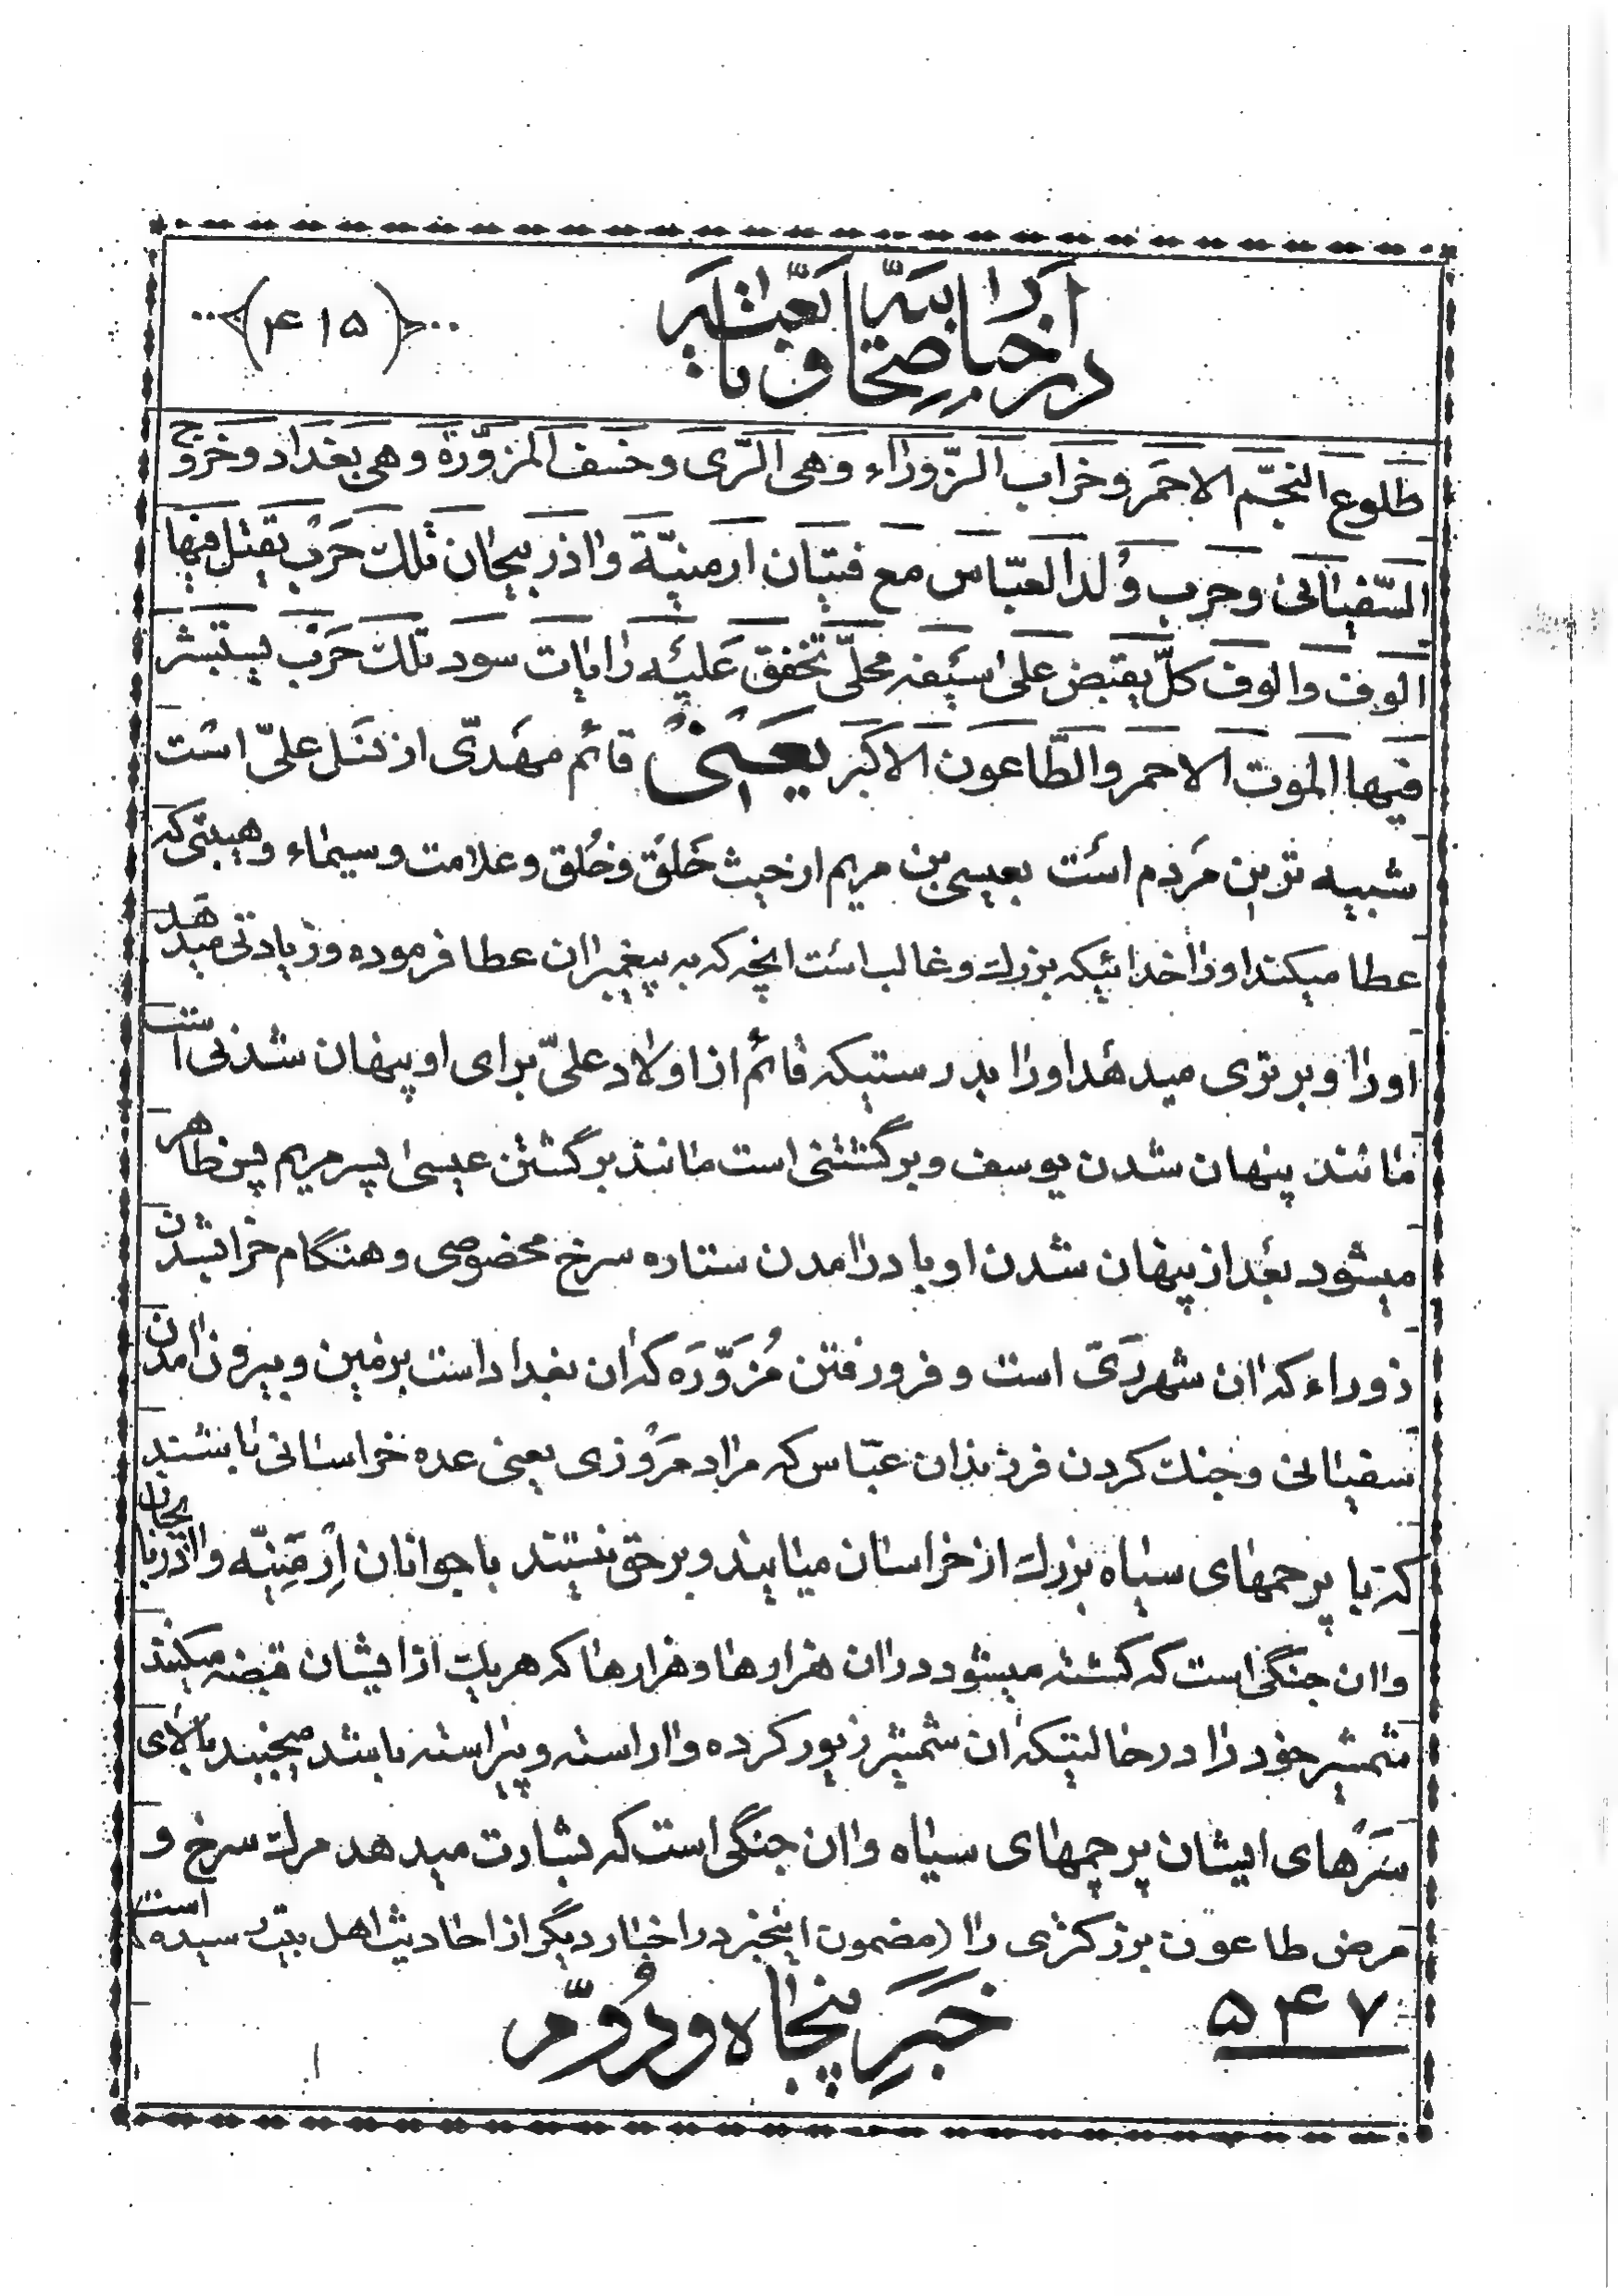 در اخبار صحابه و تابعین
﴿۴۱۵﴾
طلوع النّجم الاحمر و خراب الزّوراء و هی الرّی و خسف المزوّرة و هی بغداد و خروج
السّفیانی و حرب ولد العبّاس مع فتیان ارمنیّة و اذربیجان تلك حرب یقتل فیها
الوف و الوف كلّ یقبض علی سیفه محلّی تخفق علیه رایات سود تلك حرب یستبشر
فیها الموت الاحمر و الطّاعون الاکبر یعنی قائم مهدّی از نسل علیّ است
شبیه ترین مردم است بعیسی بن مریم از حیث خَلق و خُلق و علامت و سیماء و هیبتی که
عطا میکند او را خدائیکه بزرك و غالب است انچه که به پیغمبران عطا فرموده و زیادتی میدهد
او را و برتری میدهد او را بدرستیکه قائم از اولاد علیّ برای او پنهان شدنی است
مانند پنهان شدن یوسف و برگشتنی است مانند برگشتن عیسی پسر مریم پس ظاهر
میشود بعد از پنهان شدن او با درامدن ستاره سرخ مخصوصی و هنگام خراب شدن
زوراء که ان شهر ری است و فرو رفتن مُزوَّرَه که ان بغداد است بزمین و بیرون امدن
سفیانی و جنك کردن فرزندان عبّاس که مراد مروزی یعنی عده خراسانی باشند
که با پرچمهای سیاه بزرك از خراسان میایند و بر حق نیستند با جوانان اِرمَنِیّه و اذربایجان
و ان جنگی است که کشته میشود در ان هزارها و هزارها که هر یك از ایشان قبضه میکند
شمشیر خود را در حالتیکه ان شمشیر زیور کرده و اراسته و پیراسته باشد میجنبد بالای
سرهای ایشان پرچمهای سیاه و ان جنگی است که بشارت میدهد مرك سرخ و
مرض طاعون بزرگتری را (مضمون اینخبر در اخبار دیگر از احادیث اهل بیت رسیده است)
۵۴۷
خبَرِ پنجاه و دُوّم